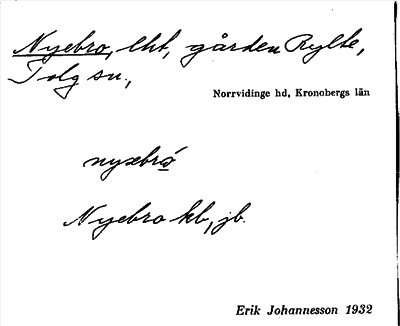 Nyebro, lht, gården Rylte,
Tolg sn.,
Norrvidinge hd, Kronobergs län
nyebro
Nyebro kb, jb.
Erik Johannesson 1932